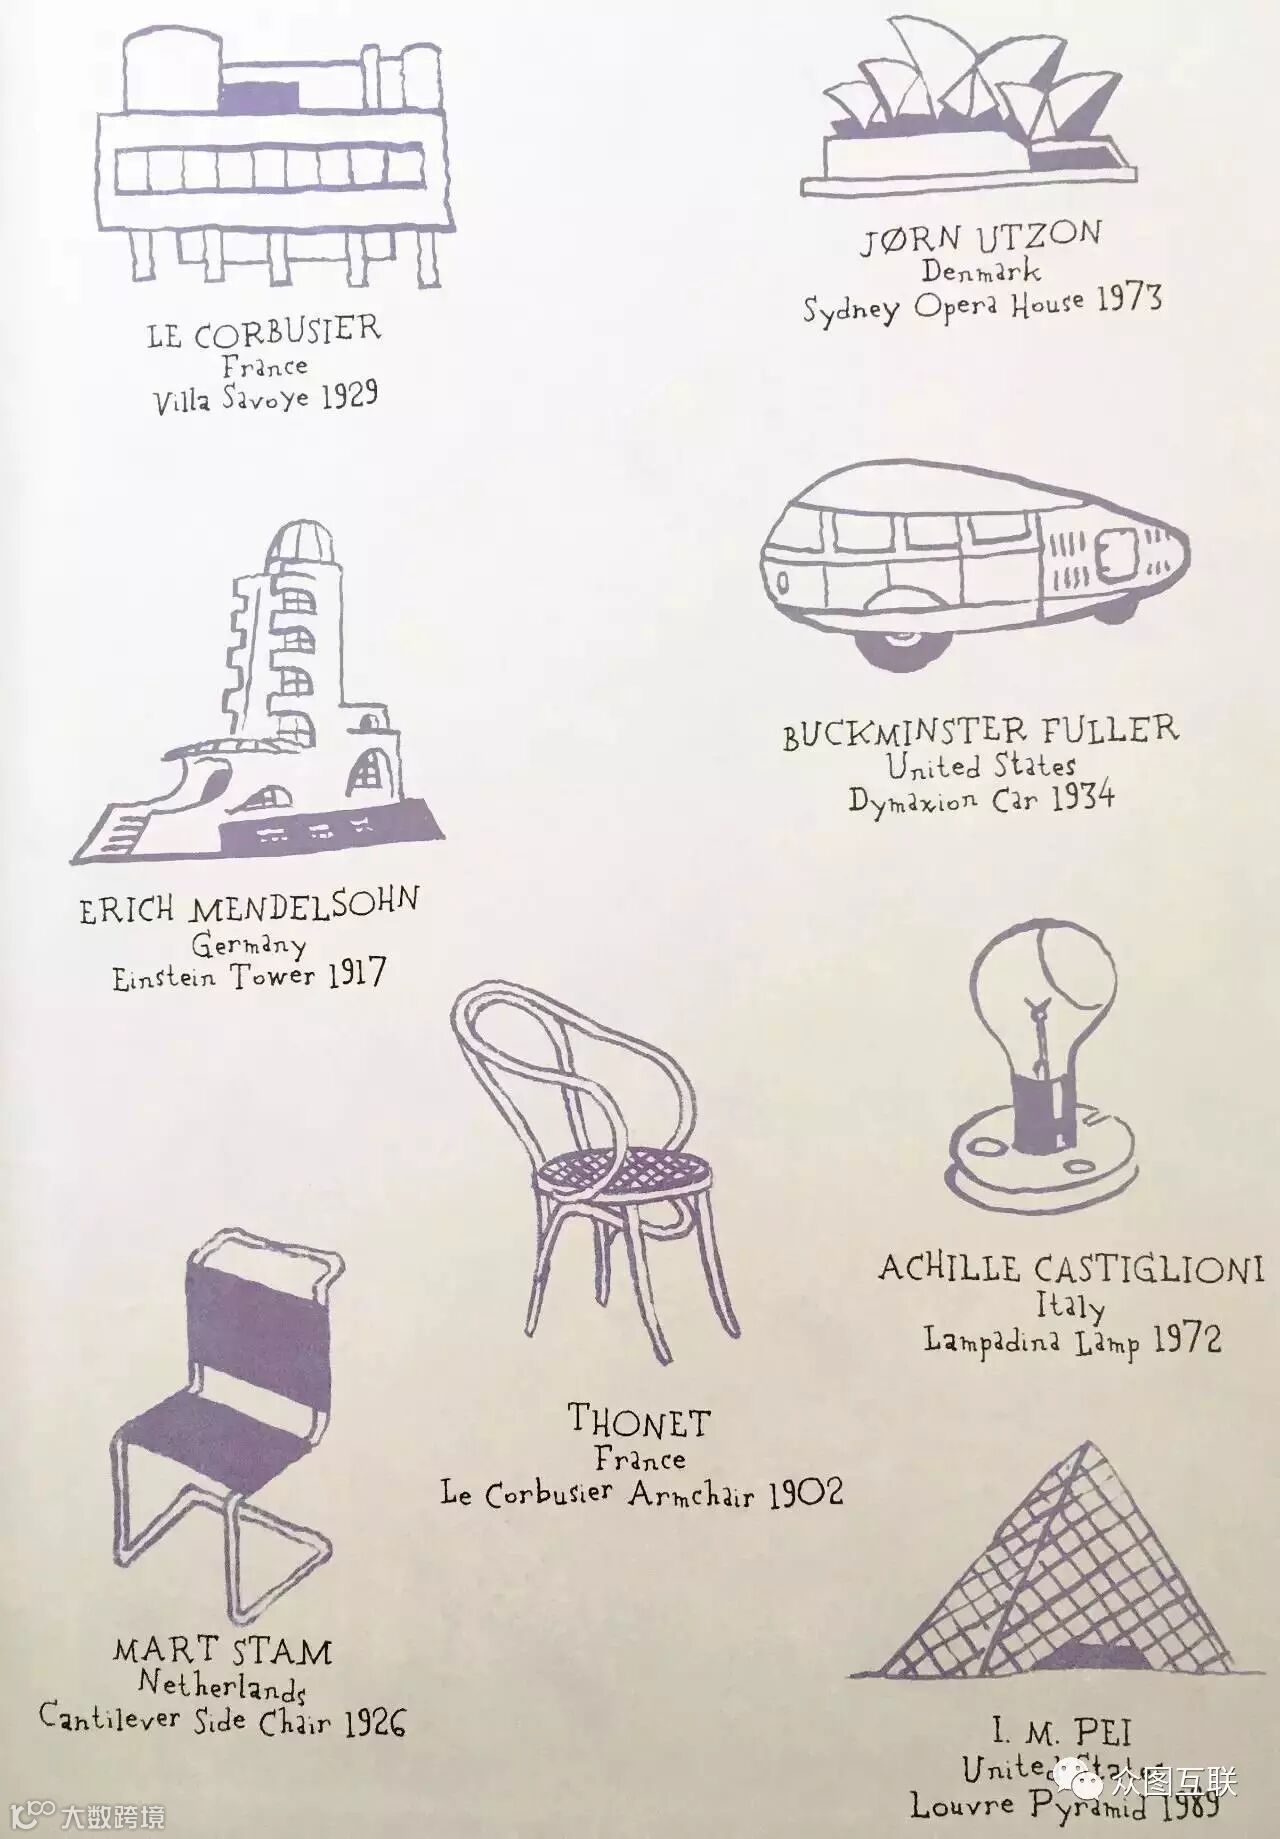 LE CORBUSIER
France
Villa Savoye 1929
JØRN UTZON
Denmark
Sydney Opera House 1973
BUCKMINSTER FULLER
United States
Dymaxion Car 1934
ERICH MENDELSOHN
Germany
Einstein Tower 1917
ACHILLE CASTIGLIONI
Italy
Lampadina Lamp 1972
THONET
France
Le Corbusier Armchair 1902
MART STAM
Netherlands
Cantilever Side Chair 1926
I. M. PEI
United States
Louvre Pyramid 1989
众图互联
大数跨境